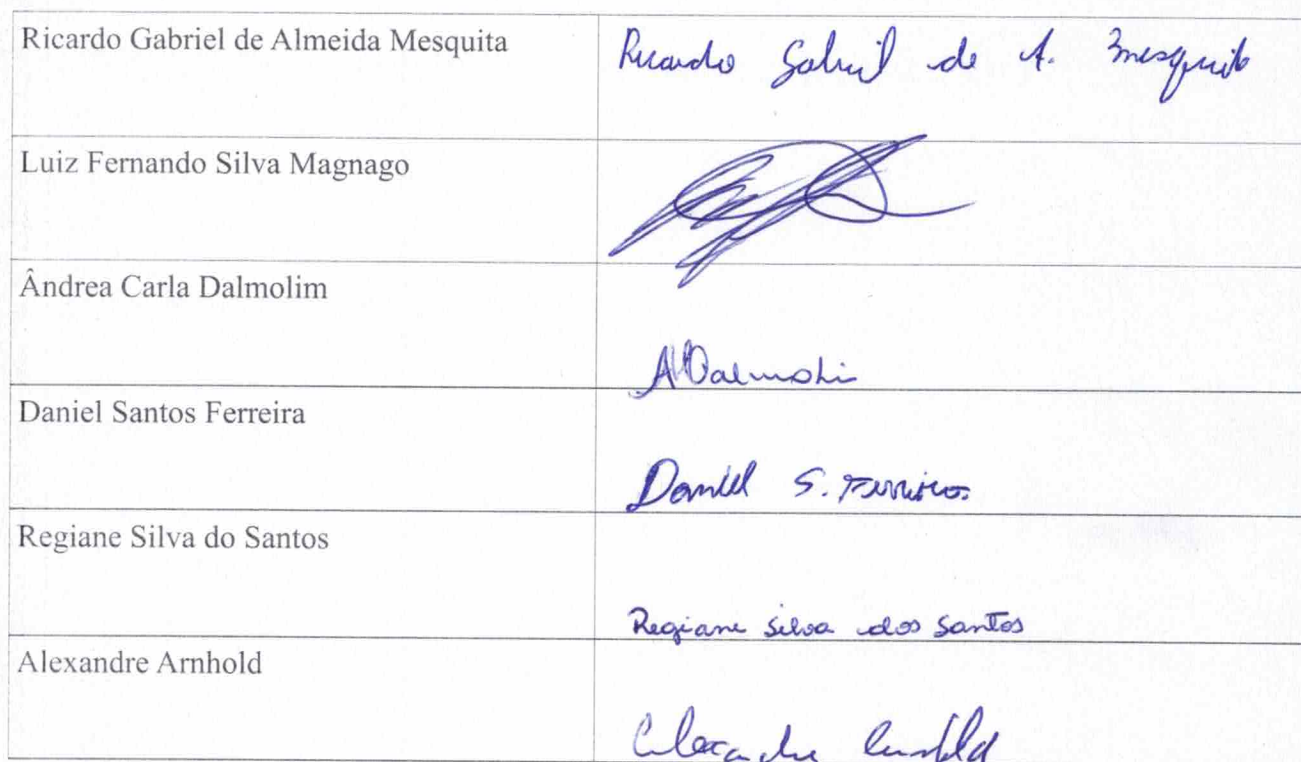 Ricardo Gabriel de Almeida Mesquita
Ricardo Gabriel de A. Mesquita
Luiz Fernando Silva Magnago
Ândrea Carla Dalmolim
ACDalmolin
Daniel Santos Ferreira
Daniel S. Ferreira
Regiane Silva do Santos
Regiane Silva dos Santos
Alexandre Arnhold
Alexandre Arnhold